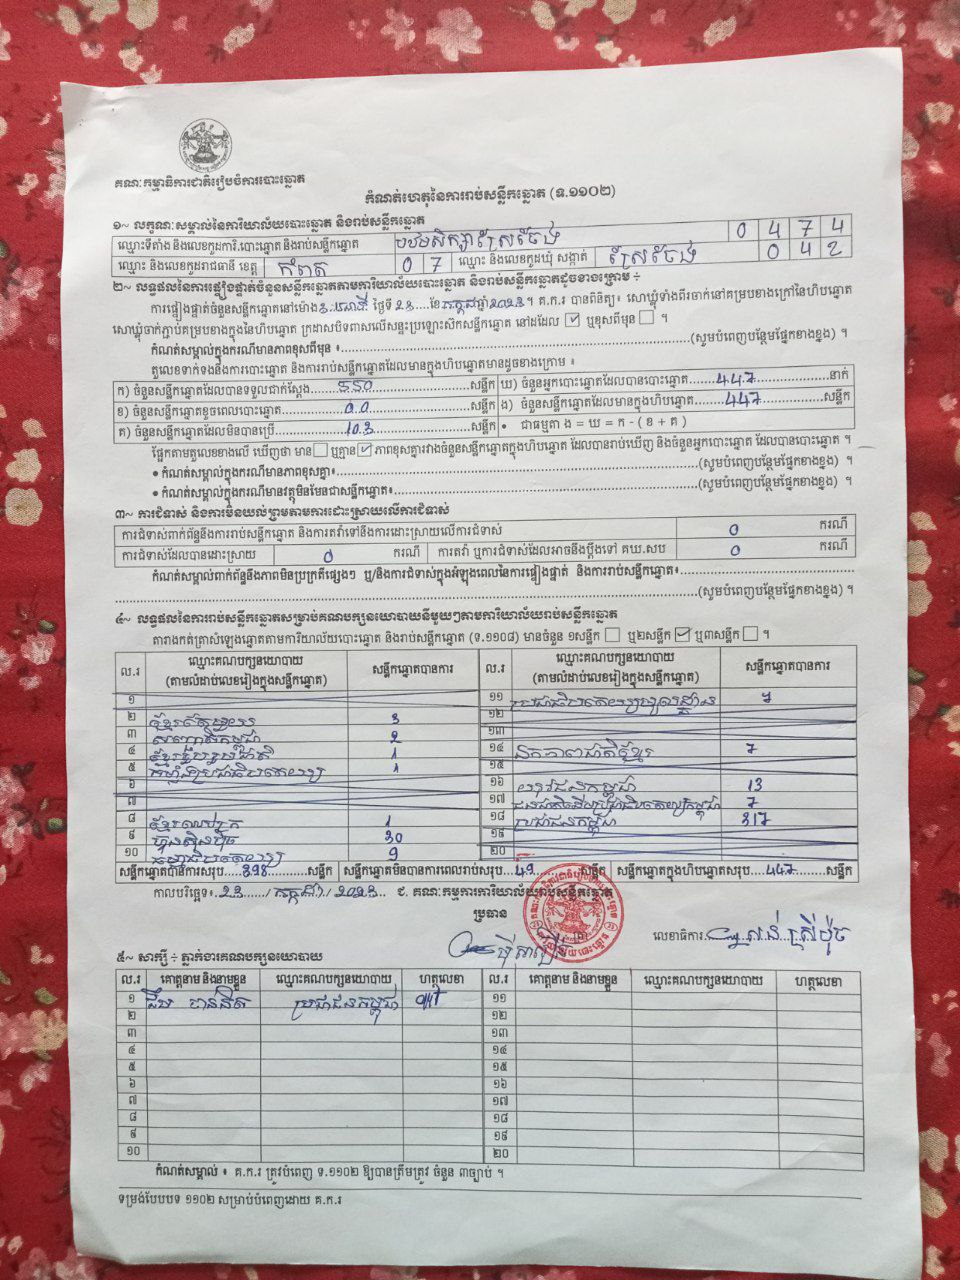 គណៈកម្មាធិការជាតិរៀបចំការបោះឆ្នោត
កំណត់ហេតុនៃការរាប់សន្លឹកឆ្នោត (ទ.១១០២)
១~ លក្ខណៈសម្គាល់នៃការិយាល័យបោះឆ្នោត និងរាប់សន្លឹកឆ្នោត
ឈ្មោះទីតាំង និងលេខកូដការិ.បោះឆ្នោត និងរាប់សន្លឹកឆ្នោត បឋមសិក្សាស្រែចែង 0 4 7 4
ឈ្មោះ និងលេខកូដរាជធានី ខេត្ត កំពត 0 7 ឈ្មោះ និងលេខកូដឃុំ សង្កាត់ ស្រែចែង 0 4 2
២~ លទ្ធផលនៃការផ្ទៀងផ្ទាត់បំនួនសន្លឹកឆ្នោតតាមការិយាល័យបោះឆ្នោត និងរាប់សន្លឹកឆ្នោតដូចខាងក្រោម ÷
ការផ្ទៀងផ្ទាត់ចំនួនសន្លឹកឆ្នោតនៅម៉ោង ថ្ងៃទី 23 ខែ កក្កដា ឆ្នាំ 2023 ។ គ.ក.រ បានពិនិត្យ៖ សោឃ្លុំទាំងពីរចាក់នៅគម្របខាងក្រៅនៃហិបឆ្នោត
សោឃ្លុំចាក់ភ្ជាប់គម្របខាងក្នុងនៃហិបឆ្នោត ក្រដាសបិទពាសលើសន្ទះប្រឡោះសិកសន្លឹកឆ្នោត នៅដដែល ☑ ឬខុសពីមុន ☐ ។
កំណត់សម្គាល់ក្នុងករណីមានភាពខុសពីមុន ៖ (សូមបំពេញបន្ថែមផ្នែកខាងខ្នង) ។
តួលេខទាក់ទងនឹងការបោះឆ្នោត និងការរាប់សន្លឹកឆ្នោតដែលមានក្នុងហិបឆ្នោតមានដូចខាងក្រោម ៖
ក) ចំនួនសន្លឹកឆ្នោតដែលបានទទួលជាក់ស្តែង 550 សន្លឹក ឃ) ចំនួនអ្នកបោះឆ្នោតដែលបានបោះឆ្នោត 447 នាក់
ខ) ចំនួនសន្លឹកឆ្នោតខូចពេលបោះឆ្នោត 00 សន្លឹក ង) ចំនួនសន្លឹកឆ្នោតដែលមានក្នុងហិបឆ្នោត 447 សន្លឹក
គ) ចំនួនសន្លឹកឆ្នោតដែលមិនបានប្រើ 103 សន្លឹក • ជាធម្មតា ង = ឃ = ក - ( ខ + គ )
ផ្អែកតាមតួលេខខាងលើ ឃើញថា មាន ☐ ឬគ្មាន ☑ ភាពខុសគ្នារវាងចំនួនសន្លឹកឆ្នោតក្នុងហិបឆ្នោត ដែលបានរាប់ឃើញ និងចំនួនអ្នកបោះឆ្នោត ដែលបានបោះឆ្នោត ។
• កំណត់សម្គាល់ក្នុងករណីមានភាពខុសគ្នា៖ (សូមបំពេញបន្ថែមផ្នែកខាងខ្នង) ។
• កំណត់សម្គាល់ក្នុងករណីមានវត្ថុមិនមែនជាសន្លឹកឆ្នោត៖ (សូមបំពេញបន្ថែមផ្នែកខាងខ្នង) ។
៣~ ការជំទាស់ និងការមិនយល់ព្រមតាមការដោះស្រាយលើការជំទាស់
ការជំទាស់ពាក់ព័ន្ធនឹងការរាប់សន្លឹកឆ្នោត និងការតវ៉ាទៅនឹងការដោះស្រាយលើការជំទាស់ 0 ករណី
ការជំទាស់ដែលបានដោះស្រាយ 0 ករណី ការតវ៉ា ឬការជំទាស់ដែលអាចនឹងប្តឹងទៅ គឃ.សប 0 ករណី
កំណត់សម្គាល់ពាក់ព័ន្ធនឹងភាពមិនប្រក្រតីផ្សេងៗ ឬ/និងការជំទាស់ក្នុងអំឡុងពេលនៃការផ្ទៀងផ្ទាត់ និងការរាប់សន្លឹកឆ្នោត៖
(សូមបំពេញបន្ថែមផ្នែកខាងខ្នង) ។
៤~ លទ្ធផលនៃការរាប់សន្លឹកឆ្នោតសម្រាប់គណបក្សនយោបាយនីមួយៗតាមការិយាល័យរាប់សន្លឹកឆ្នោត
តារាងកត់ត្រាសំឡេងឆ្នោតតាមការិយាល័យបោះឆ្នោត និងរាប់សន្លឹកឆ្នោត (ទ.១១០៨) មានចំនួន ១សន្លឹក ☐ ឬ២សន្លឹក ☑ ឬ៣សន្លឹក ☐ ។
ល.រ ឈ្មោះគណបក្សនយោបាយ (តាមលំដាប់លេខរៀងក្នុងសន្លឹកឆ្នោត) សន្លឹកឆ្នោតបានការ ល.រ ឈ្មោះគណបក្សនយោបាយ (តាមលំដាប់លេខរៀងក្នុងសន្លឹកឆ្នោត) សន្លឹកឆ្នោតបានការ
១ ១១ ប្រជាធិបតេយ្យមូលដ្ឋាន
២ 3 ១២
៣ សញ្ជាតិកម្ពុជា 2 ១៣
៤ ខ្មែររួបរួមជាតិ 1 ១៤ ឯកភាពជាតិខ្មែរ 7
៥ កម្លាំងប្រជាធិបតេយ្យ 1 ១៥
៦ ១៦ យុវជនកម្ពុជា 13
៧ ១៧ ជនជាតិដើមប្រជាធិបតេយ្យកម្ពុជា 7
៨ ខ្មែរឈប់ក្រ 1 ១៨ ប្រជាជនកម្ពុជា 317
៩ ហ៊្វុនស៊ិនប៉ិច 30 ១៩
១០ ធម្មាធិបតេយ្យ 9 ២០
សន្លឹកឆ្នោតបានការសរុប 398 សន្លឹក សន្លឹកឆ្នោតមិនបានការពេលរាប់សរុប 49 សន្លឹក សន្លឹកឆ្នោតក្នុងហិបឆ្នោត 447 សន្លឹក
កាលបរិច្ឆេទ៖ 23 / កក្កដា / 2023 ជ. គណៈកម្មការការិយាល័យរាប់សន្លឹកឆ្នោត
ប្រធាន
លេខាធិការ សន់ ស្រីម៉ុច
៥~ សាក្សី ÷ ភ្នាក់ងារគណបក្សនយោបាយ
ល.រ គោត្តនាម និងនាមខ្លួន ឈ្មោះគណបក្សនយោបាយ ហត្ថលេខា ល.រ គោត្តនាម និងនាមខ្លួន ឈ្មោះគណបក្សនយោបាយ ហត្ថលេខា
១ ប្រជាជនកម្ពុជា ១១
២ ១២
៣ ១៣
៤ ១៤
៥ ១៥
៦ ១៦
៧ ១៧
៨ ១៨
៩ ១៩
១០ ២០
កំណត់សម្គាល់ ៖ គ.ក.រ ត្រូវបំពេញ ទ.១១០២ ឱ្យបានត្រឹមត្រូវ ចំនួន ៣ច្បាប់ ។
ទម្រង់បែបបទ ១១០២ សម្រាប់បំពេញដោយ គ.ក.រ